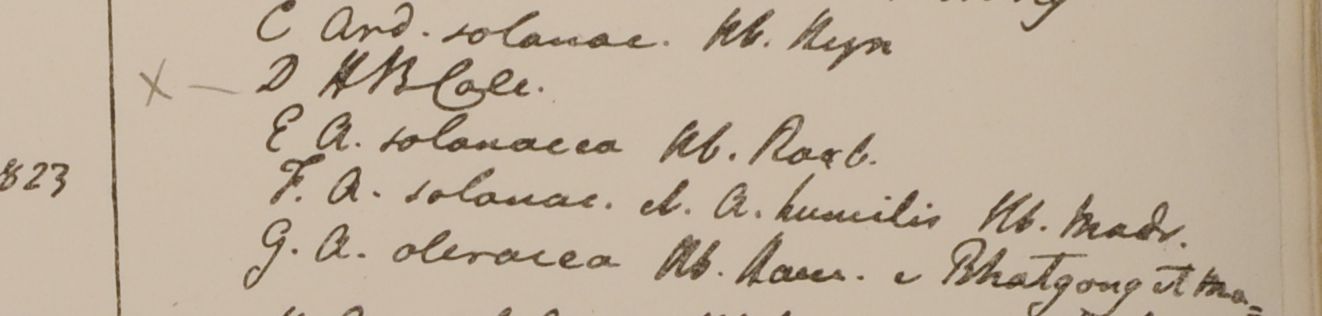 C Ard. solanac. Hb. Heyn
X — D HBCalc.
E A. solanacea Hb. Roxb.
823
F. A. solanac. et. A. humilis Hb. Madr.
G. A. oleracea Hb. Ham. e Bhatgong et Ma=